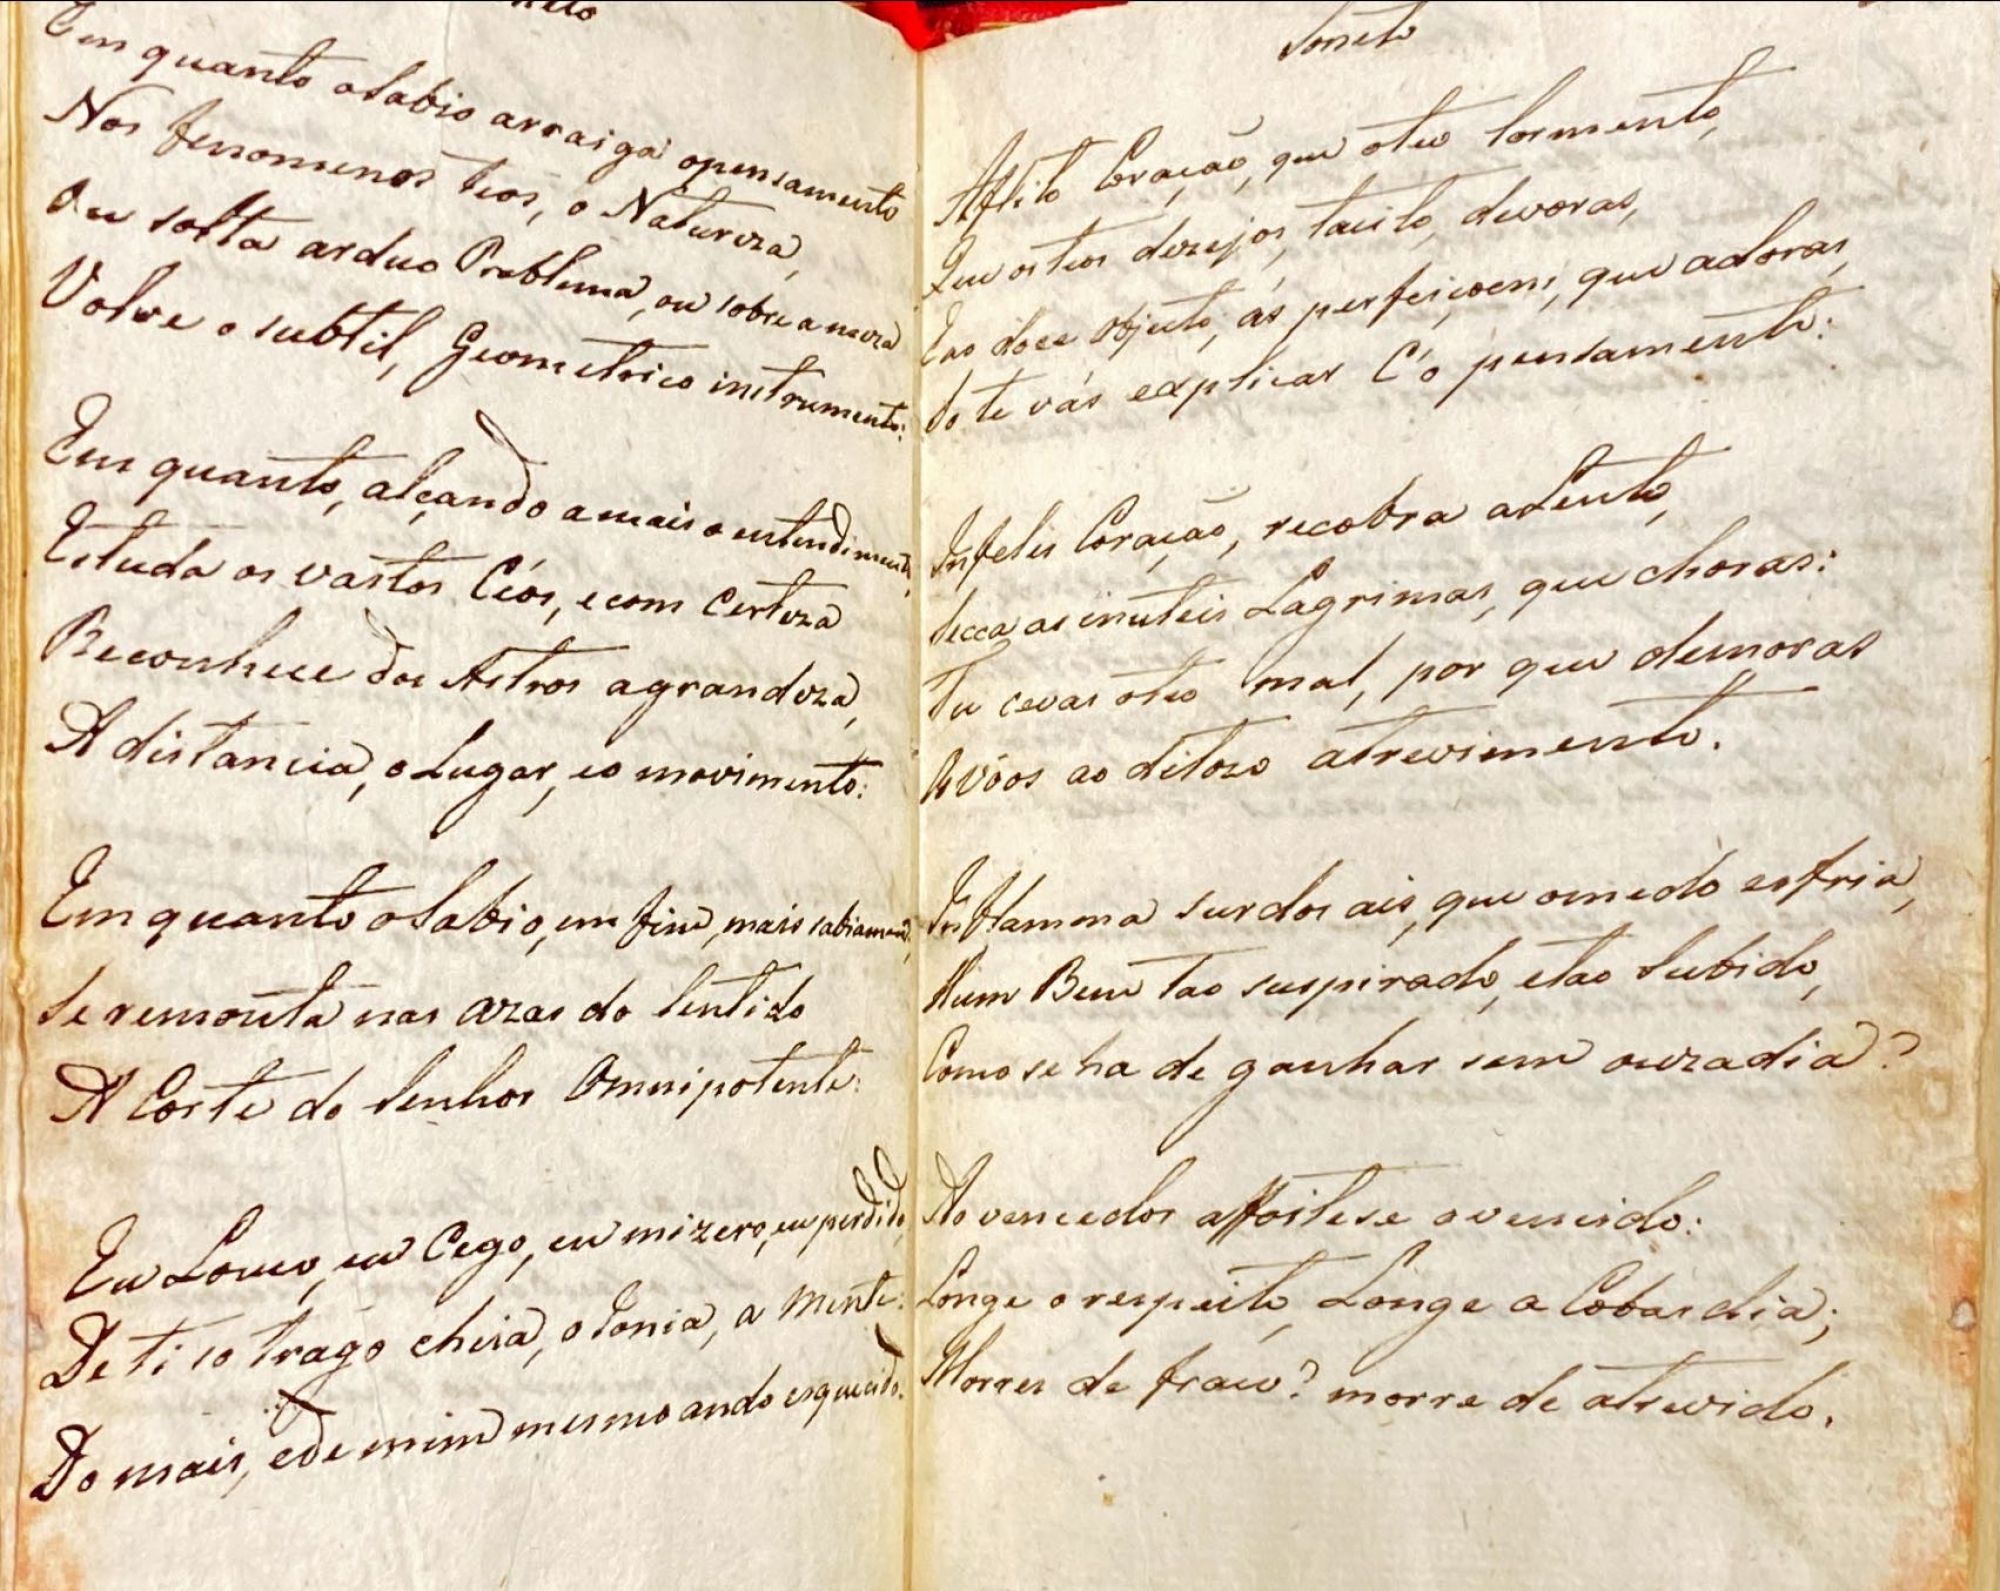 Em quanto o Sabio arraiga o pensamento
Nos fenomenos teos, o Natureza,
Ou solta arduo Problema, ou sobre a meza
Volve o subtil, Geometrico instrumento:
Em quanto, alçando a mais o entendimento,
Estuda os vastos Céos, e com certeza
Reconhece dos Astros a grandeza,
A distancia, o Lugar, eo movimento:
Em quanto o Sabio, em fim, mais sabiamente,
Se remonta nas azas do Sentido
A Corte do Senhor Omnipotente:
Eu Louco, eu Cego, eu mizero, eu perdido,
De ti so trago cheia, o Jonia, a Mente:
Do mais, e de mim mesmo ando esquecido.
Soneto
Afflito Coração, que o teo tormento,
Que os teos dezejos, tacito, devoras,
E ao doce objecto, ás perfeiçoens, que adoras,
So te vás explicar C'o pensamento:
Infelis Coração, recobra alento,
Secca as inuteis Lagrimas, que choras:
Tu cevas o teo mal, por que demoras
Os vóos ao ditozo atrevimento.
Inflamma surdos ais, que o medo esfria,
Hum Bem tao suspirado, e tao Subido,
Como se ha de ganhar sem ouzadia?
Ao vencedor affoitese o vencido:
Longe o respeito, Longe a Cobardia;
Morres de fraco? morre de atrevido.